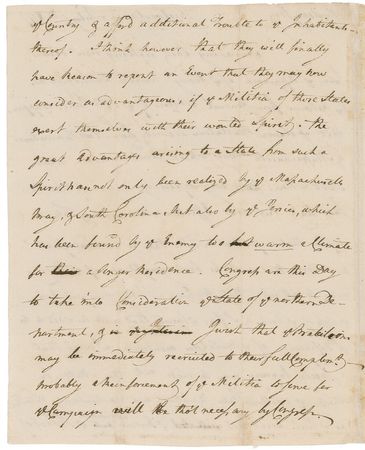 ye Country & afford additional Trouble to ye Inhabitants
thereof. I think however that they will finally
have reason to repent an Event that they may now
consider as advantageous, if ye Militia of those States
exert themselves with their wonted Spirit, - the
great advantages arising to a State from such a
Spirit has not only been realized by ye Massachusetts
Bay, & South Carolina, but also by ye Jersies, which
has been found by ye Enemy too hot warm a Climate
for their a longer Residence. Congress are this Day
to take into Consideration ye State of ye northern De-
partment, & in I wish that ye Battalions
may be immediately recruited to their full Complemt -
probably a Reinforcement of ye Militia to serve for
ye Campaign will be tho't necessary by Congress.